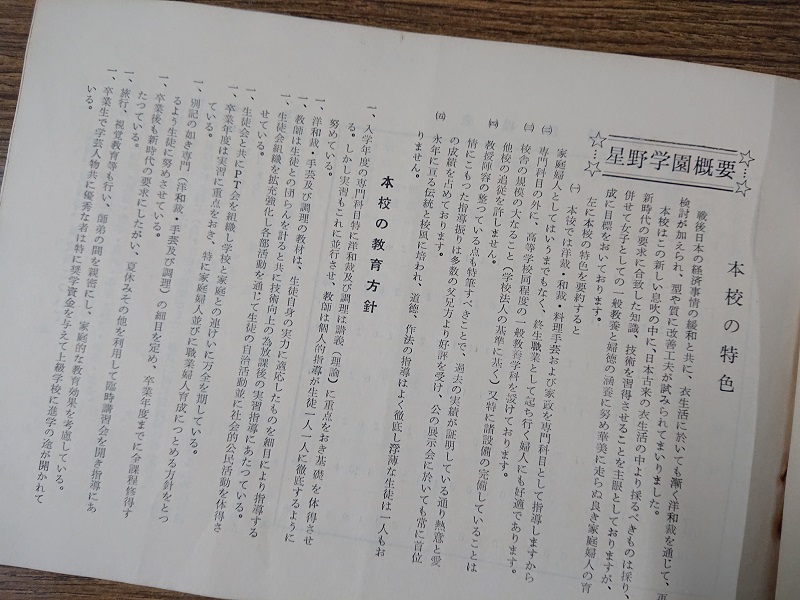 星野学園概要
本校の特色
戦後日本の経済事情の緩和と共に、衣生活に於いても漸く洋和裁を通じて、再
検討が加えられ、型や質に改善工夫が試みられてまいりました。
本校はこの新しい息吹の中に、日本古来の衣生活の中より採るべきものは採り、
新時代の要求に合致した知識、技術を習得させることを主眼としておりますが、
併せて女子としての一般教養と婦徳の涵養に努め華美に走らぬ良き家庭婦人の育
成に目標をおいております。
左に本校の特色を要約すると
㈠ 本校では洋裁・和裁・料理手芸および家政を専門科目として指導しますから
家庭婦人としてはいうまでもなく、終生職業として起ち行く婦人にも好適であります。
㈡ 専門科目の外に、高等学校同程度の一般教養学科を設けております。
㈢ 校舎の規模の大なること(学校法人の基準に基く)又特に諸設備の完備していることは
他校の追従を許しません。
㈣ 教授陣容の整っている点も特筆すべきことで、過去の実績が証明している通り熱意と愛
情にこもった指導振りは多数の父兄方より好評を受け、公の展示会に於いても常に首位
の成績を占めております。
㈤ 永年に亘る伝統と校風に培われ、道徳、作法の指導はよく徹底し浮薄な生徒は一人もお
りません。
本校の教育方針
一、入学年度の専門科目特に洋和裁及び調理は講義(理論)に重点をおき基礎を体得させ
る。しかし実習もこれに並行させ、教師は個人的指導が生徒一人一人に徹底するように
努めている。
一、洋和裁・手芸及び調理の教材は、生徒自身の実力に適応したものを細目により指導する
一、教師は生徒との団らんを計ると共に技術向上の為放課後の実習指導にあたつている。
一、生徒会組織を拡充強化し各部活動を通じて生徒の自治活動並に社会的公民活動を体得さ
せている。
一、生徒会と共にPT会を組織し学校と家庭との連けいに万全を期している。
一、卒業年度は実習に重点をおき、特に家庭婦人並びに職業婦人育成につとめる方針をとつ
ている。
一、別記の如き専門(洋和裁、手芸及び調理)の細目を定め、卒業年度までに全課程修得す
るよう生徒に努めさせている。
一、卒業後も新時代の要求にしたがい、夏休みその他を利用して臨時講習会を開き指導にあ
たつている。
一、旅行、視覚教育等も行い、師弟の間を親密にし、家庭的な教育効果を考慮している。
一、卒業生で学芸人物共に優秀な者は特に奨学資金を与えて上級学校に進学の途が開かれて
いる。